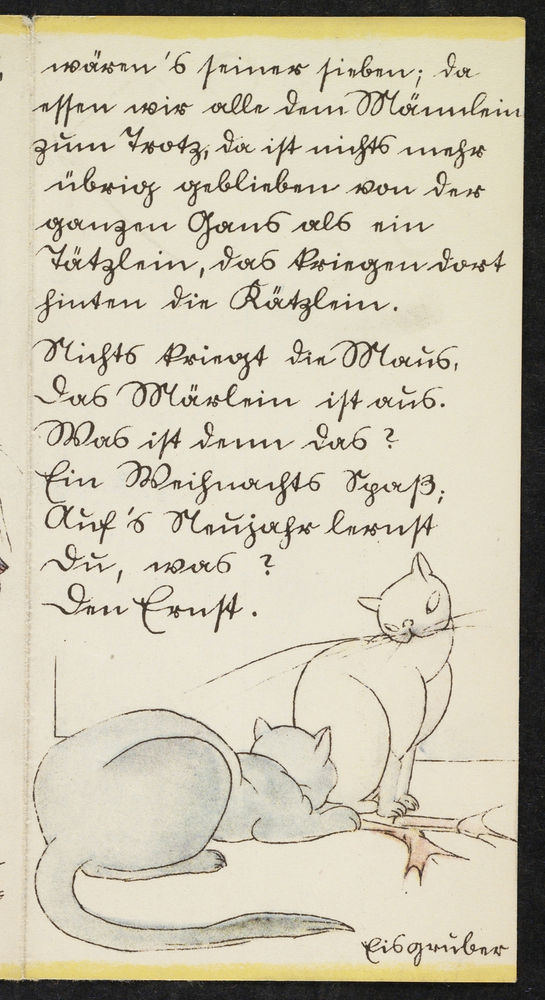 wären's seiner sieben; da
essen wir alle dem Männlein
zum Trotz, da ist nichts mehr
übrig geblieben von der
ganzen Gans als ein
Tätzlein, das kriegen dort
hinten die Kätzlein.
Nichts kriegt die Maus,
Das Märlein ist aus.
Was ist denn das?
Ein Weihnachts Spaß;
Auf's Neujahr lernst
Du, was?
Den Ernst.
Eisgruber